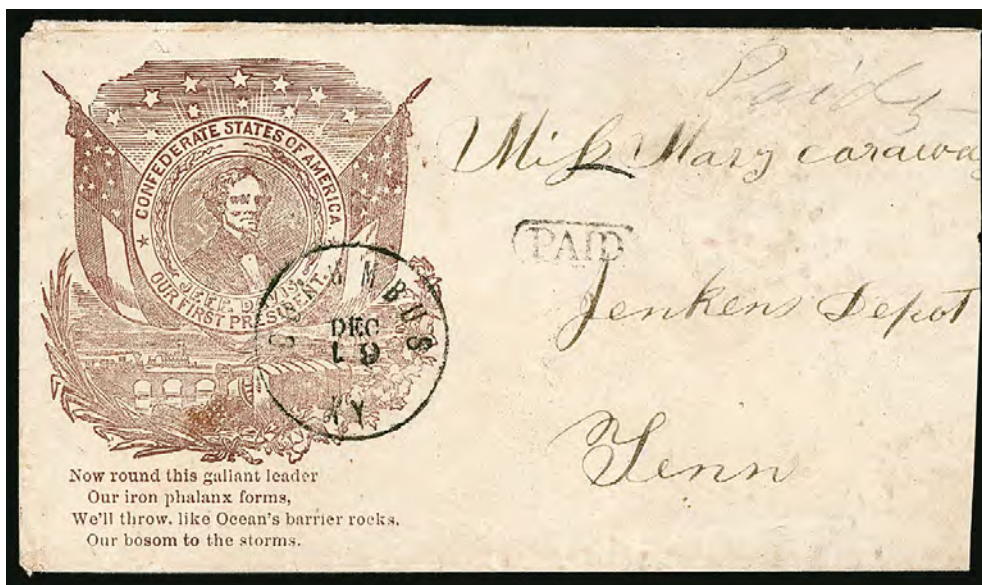 CONFEDERATE STATES OF AMERICA.
JEFF. DAVIS.
OUR FIRST PRESIDENT.
COLUMBUS
DEC
KY
Now round this gallant leader
Our iron phalanx forms,
We'll throw, like Ocean's barrier rocks,
Our bosom to the storms.
Paid 5
Miss Mary
PAID
Jenkens Depot
Tenn